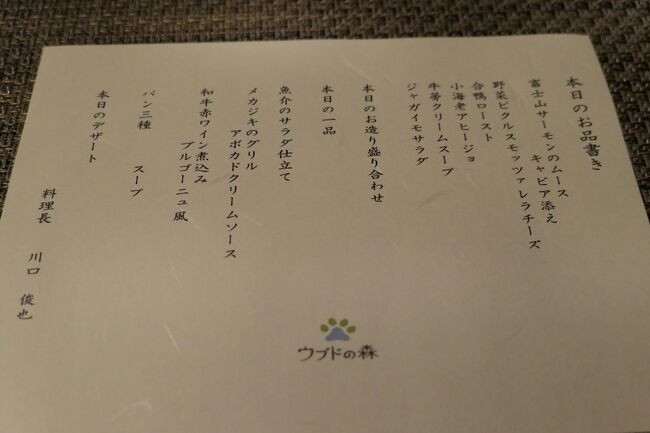 本日のお品書き
富士山サーモンのムース
キャビア添え
野菜ピクルスモッツァレラチーズ
合鴨ロースト
小海老アヒージョ
牛蒡クリームスープ
ジャガイモサラダ
本日のお造り盛り合わせ
本日の一品
魚介のサラダ仕立て
メカジキのグリル
アボカドクリームソース
和牛赤ワイン煮込み
ブルゴーニュ風
パン三種 スープ
本日のデザート
料理長 川口 俊也
ウブドの森